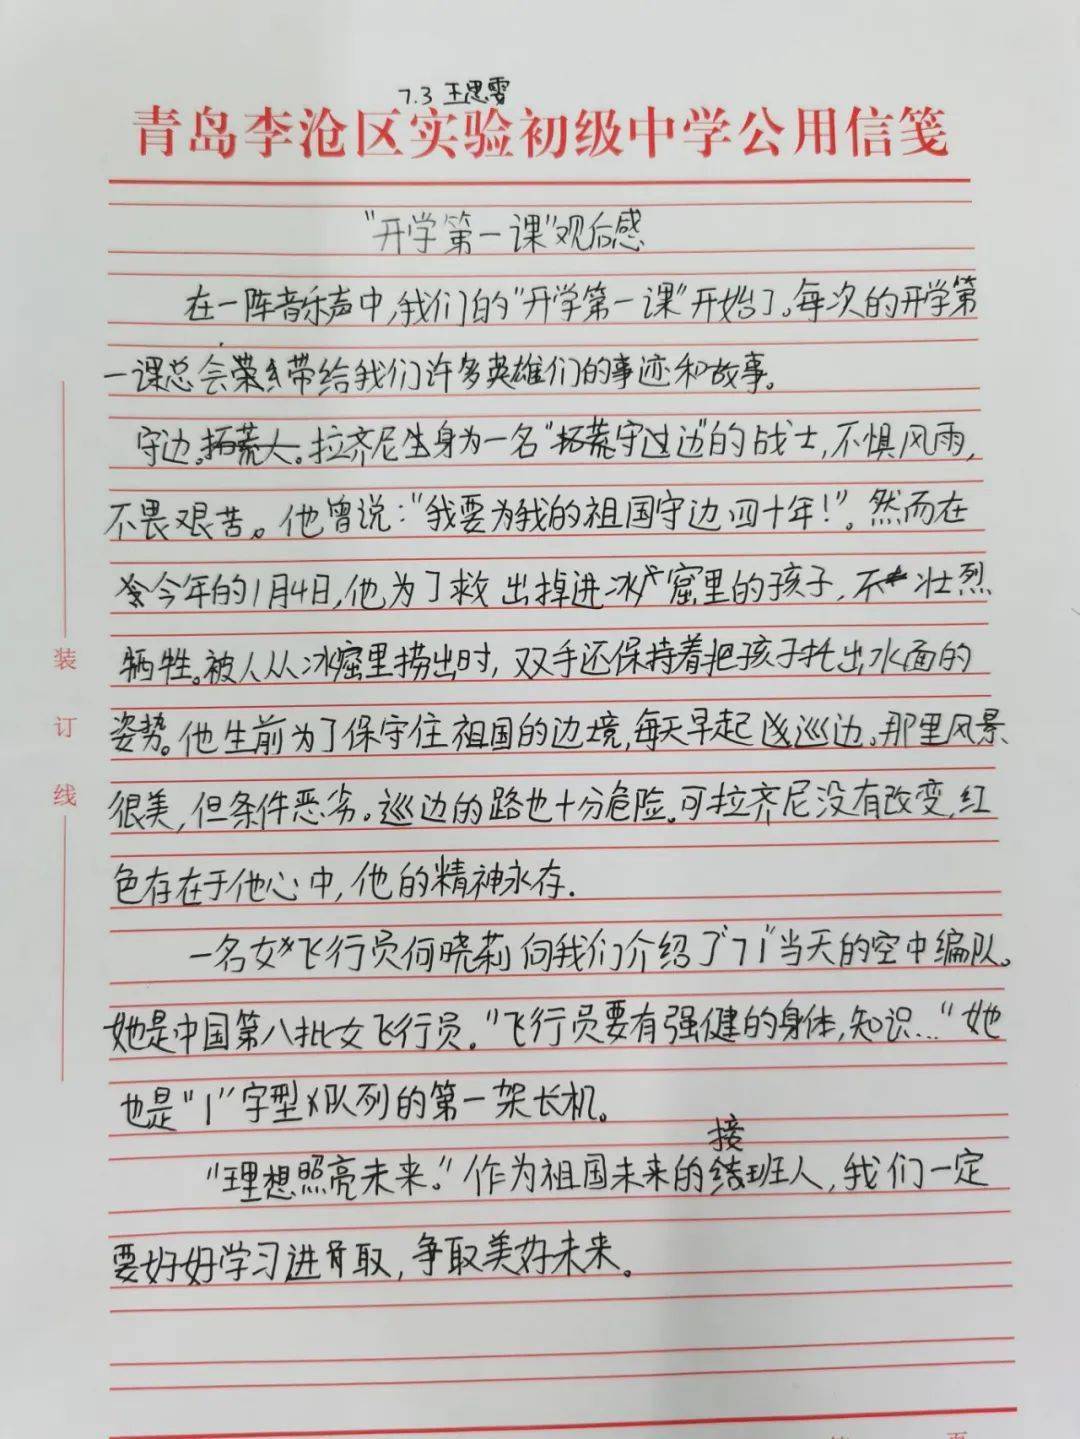 7.3 王思雯
青岛李沧区实验初级中学公用信笺
“开学第一课”观后感
在一阵音乐声中,我们的“开学第一课”开始了。每次的开学第
一课总会带给我们许多英雄们的事迹和故事。
守边。拓荒人。拉齐尼生身为一名“拓荒守过边”的战士,不惧风雨,
不畏艰苦。他曾说:“我要为我的祖国守边四十年!”。然而在
今年的1月4日,他为了救出掉进冰窟里的孩子,不壮烈
牺牲。被人从冰窟里捞出时,双手还保持着把孩子托出水面的
姿势。他生前为了保守住祖国的边境,每天早起巡边。那里风景
很美,但条件恶劣。巡边的路也十分危险。可拉齐尼没有改变,红
色存在于他心中,他的精神永存.
一名女飞行员何晓莉向我们介绍了“71”当天的空中编队。
她是中国第八批女飞行员。“飞行员要有强健的身体,知识...“她
也是“1”字型队列的第一架长机。
“理想照亮未来。”作为祖国未来的接班人,我们一定
要好好学习进取,争取美好未来。
装
订
线